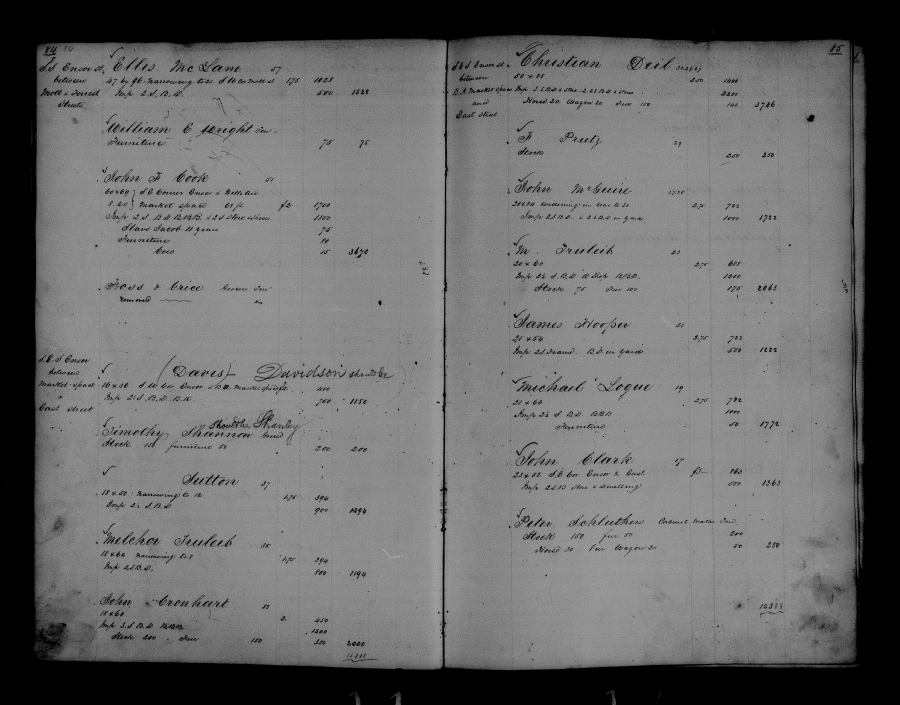 84
S.S Ensor St. Ellis McLane 57
between 47 by 96 narrowing to 21. S W Cor Mott St 175 1028
Mott & Forrest Imp 2 S. B. D. 500 1528
Streets
William E Wright Fur.
Furniture 75 75
John F Cook 51
60 x 69 } S E Corner Ensor &
8. 20 } market space 68 ft £2 1700
Imp 2 S. B D B.B.B. & 2 S Store & Shed 1800
Slave Jacob 11 years 75
Furniture 80
Cow 15 3670
Foss & Price
removed
S. E. S Ensor
between (Daves) Davidson should be
market space 16 x 36 S W Cor Ensor & B.A. market space 400
& Imp 2½ S. B. D. B.K. 750 1150
East street
should be Shanley
Timothy Shannon
Stock 150 furniture 50 200 200
Sutton 37
18 x 50 narrowing to 12 175 394
Imp 2½ S. B. D 900 1294
Melchor Truleib 35
18 x 60 narrowing to 8 175 394
Imp 2 S. B. D. 800 1194
John Cronhart 13
18 x 60 2. 450
Imp 3. S. B. D B.B.B 1200
Stock 200 Fur 150 350 2000
11111
85
S E S Ensor St Christian Deil
between 50 x 85 250 1000
B. A. market space 2200
and Horse 20. Wagon 20 Fur 100 140 3746
East street
F Prutz 29
Stock 250 250
John McGuire 27.25
20 x 94 widening in rear to 30 275 722
Imp 2 S B D. & 2 S B D. in yard 1000 1722
M. Truleib 23
20 x 60 275 688
Imp 2½ S. B. D B Shop B.B.D. 1200
Stock 75 Fur 100 175 2063
James Hooper 21
21 x 54 275 722
Imp 2 S Frame B D in yard 500 1222
Michael Logue 19
21 x 66 275 722
Imp 2½ S. B D. B.B.B 1000
Furniture 50 1772
John Clark 17
23 x 52 S. E Cor Ensor & East £3 863
Imp 2 S B Store & Dwelling 500 1363
Peter Schluthers Cabinet Maker Fur.
Stock 150 fur 50 200
Horse 30 Fur Wagon 20 50 250
12388